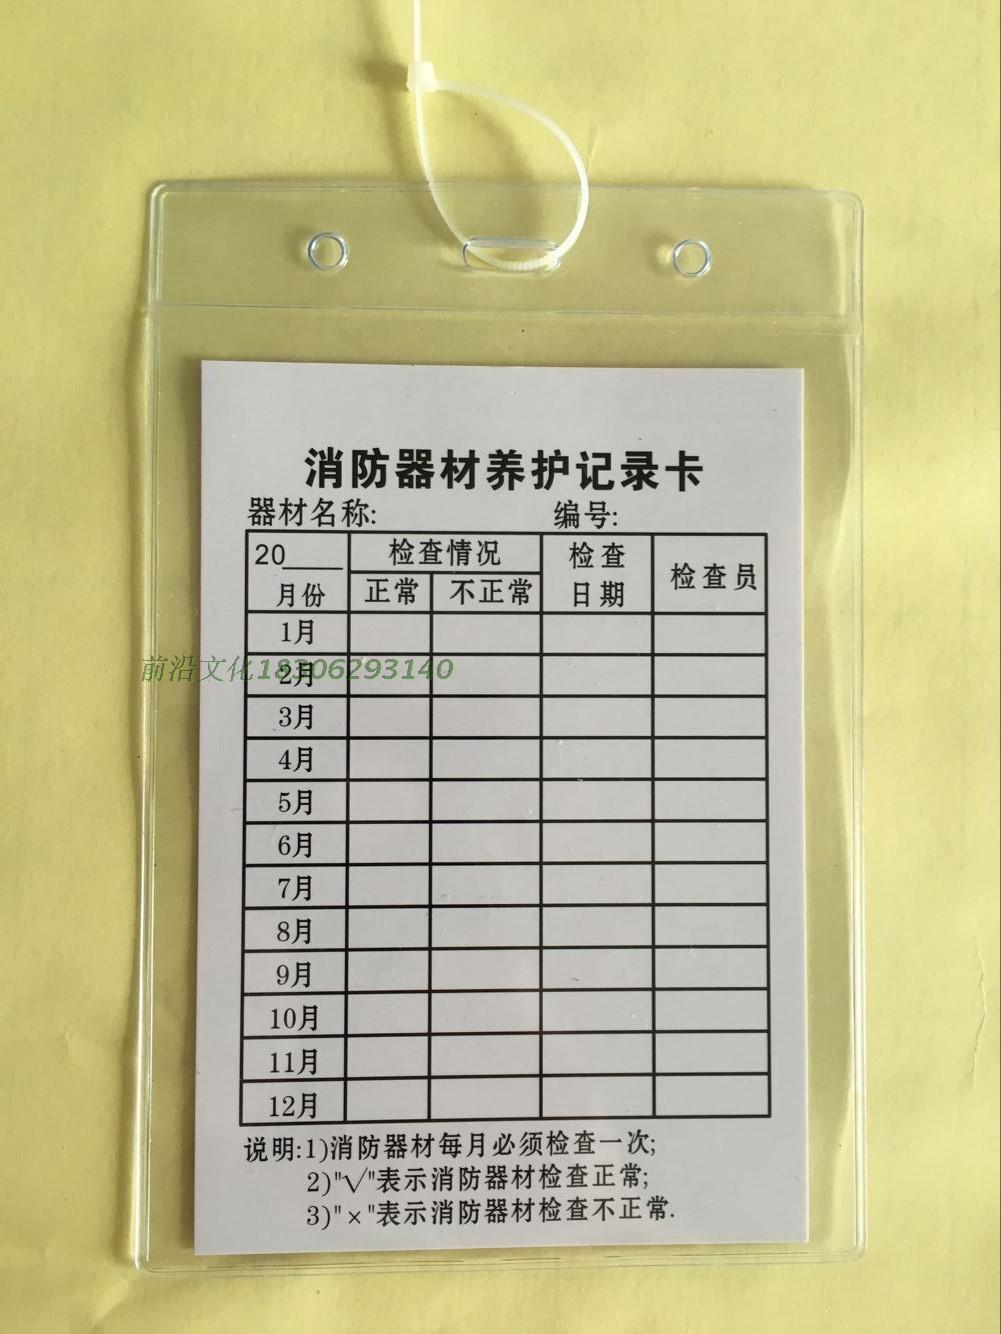 消防器材养护记录卡
器材名称: 编号:
20____ 检查情况 检查 检查员
月份 正常 不正常 日期
1月
前沿文化18306293140
2月
3月
4月
5月
6月
7月
8月
9月
10月
11月
12月
说明:1)消防器材每月必须检查一次;
2)"√"表示消防器材检查正常;
3)"×"表示消防器材检查不正常.